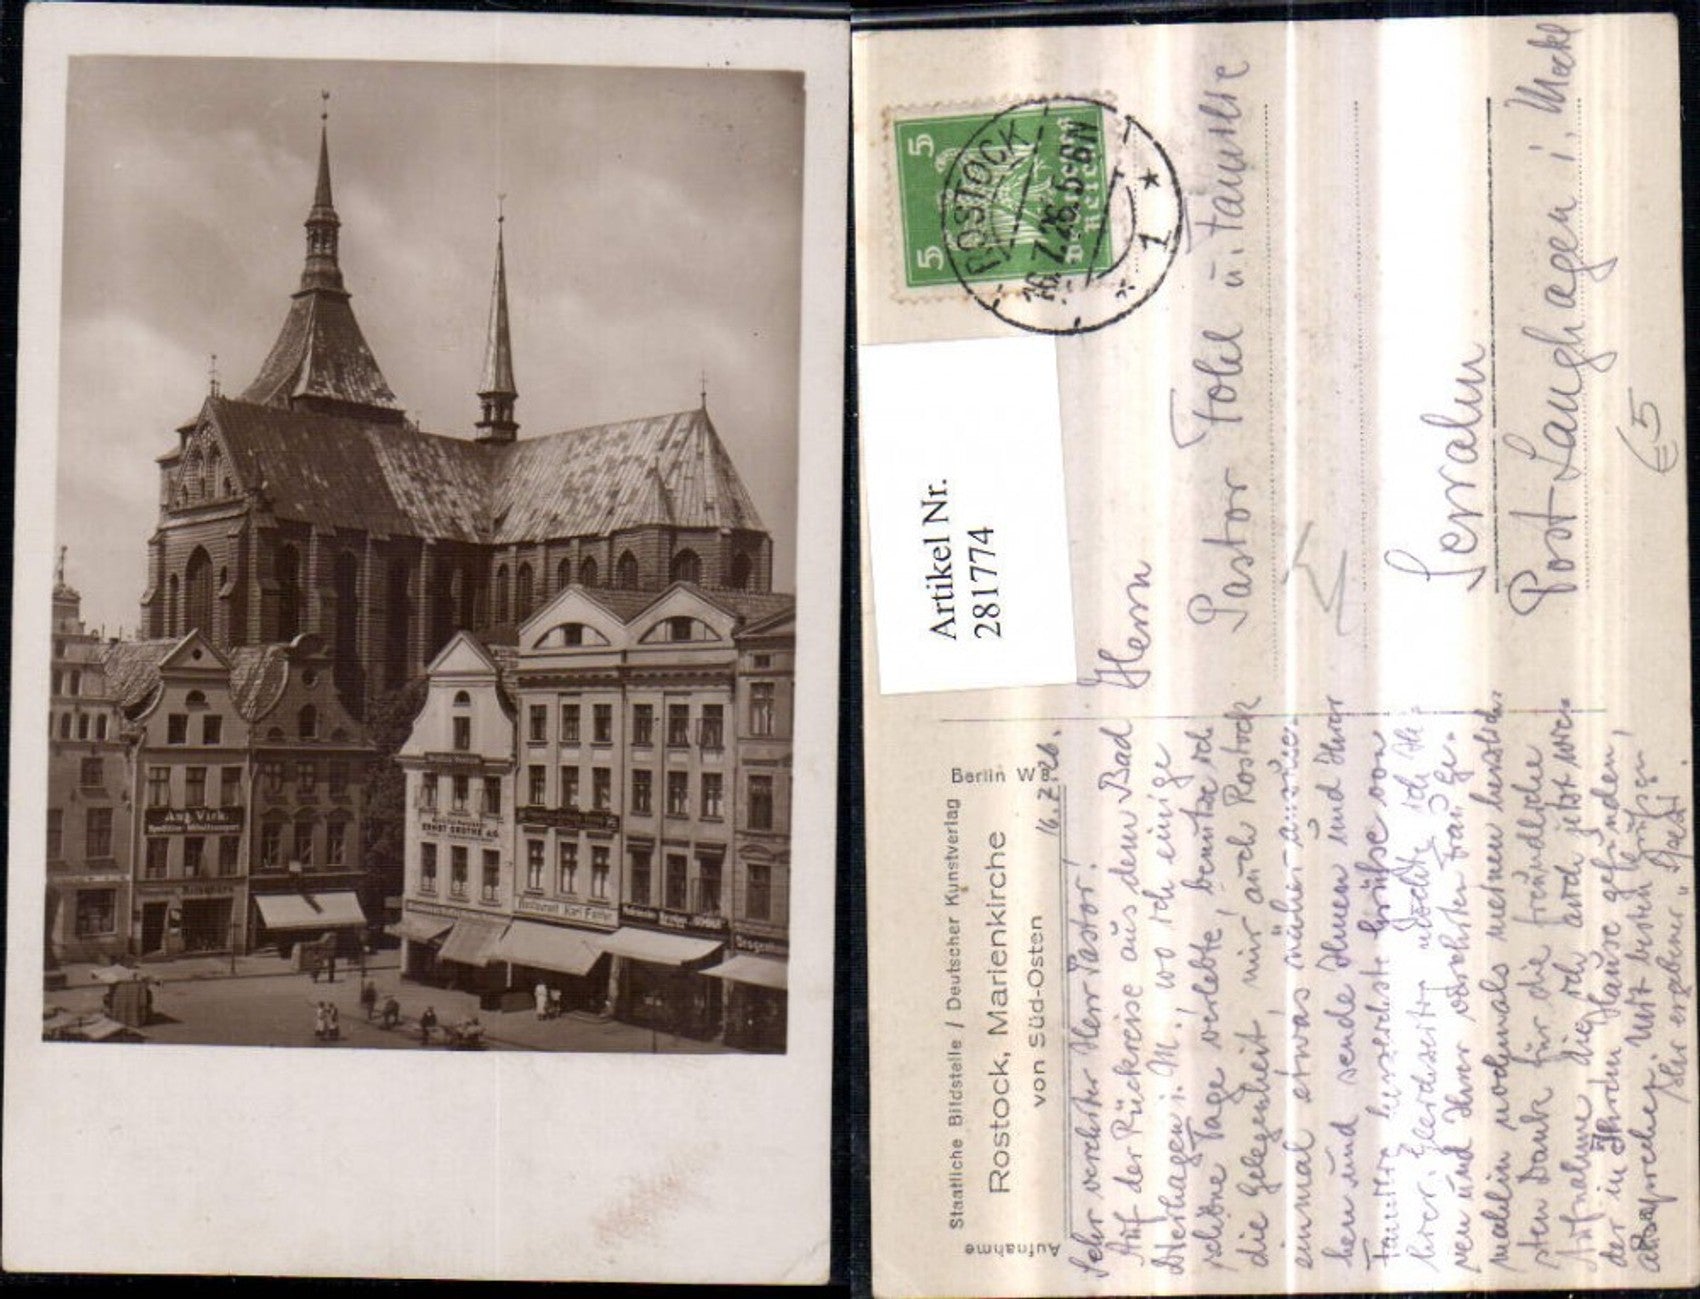 Aug. Vick.
Spedition Möbeltransport
ERNST GROTHE A.G.
Restaurant Karl
Drogen
5 5
Deutsches Reich
ROSTOCK
16.7.26.5-6N
* 1 *
Artikel Nr.
2817774
Aufnahme
Staatliche Bildstelle / Deutscher Kunstverlag
Berlin W 8
Rostock, Marienkirche
von Süd-Osten
16.7.26.
Sehr verehrter Herr Pastor!
Auf der Rückreise aus dem Bad
i. M., wo ich einige
schöne Tage verlebte, benutze ich
die Gelegenheit, mir auch Rostock
einmal etwas näher anzuse-
hen und sende Ihnen und Ihrer
Familie herzlichste Grüße von
hier. Gleichzeitig möchte ich Ih-
nen und Ihrer verehrten Frau Ge-
mahlin nochmals meinen herzlich-
sten Dank für die freundliche
Aufnahme, die ich auch jetzt wie-
der in Ihrem Hause gefunden,
aussprechen. Mit besten Grüßen
Ihr ergebener
Herrn
Pastor u. Familie
Serrahn
Post Langhagen i. Meckl
€5